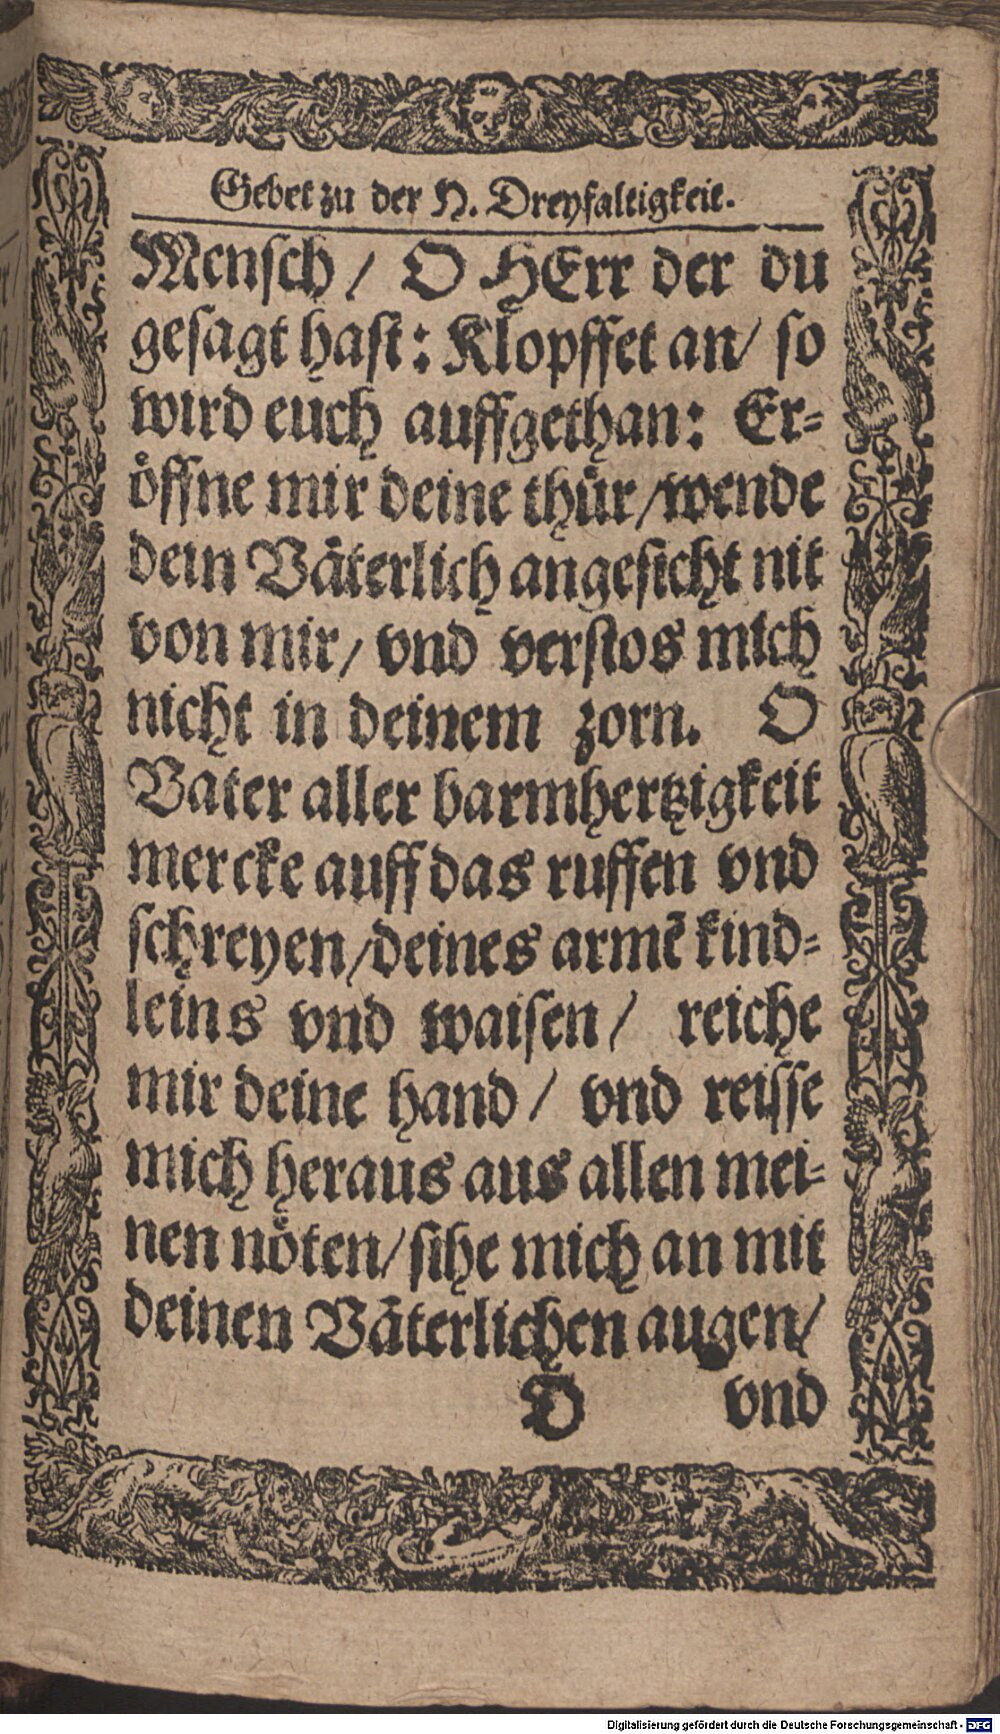 Gebet zu der H. Dreyfaltigkeit.
Mensch / O HErr der du
gesagt hast: Klopffet an / so
wird euch auffgethan: Er-
öffne mir deine thür / wende
dein Väterlich angesicht nit
von mir / vnd verstos mich
nicht in deinem zorn. O
Vater aller barmhertzigkeit
mercke auff das ruffen vnd
schreyen / deines armẽ kind-
leins vnd waisen / reiche
mir deine hand / vnd reisse
mich heraus aus allen mei-
nen nöten / sihe mich an mit
deinen Väterlichen augen /
D vnd
Digitalisierung gefördert durch die Deutsche Forschungsgemeinschaft - DFG